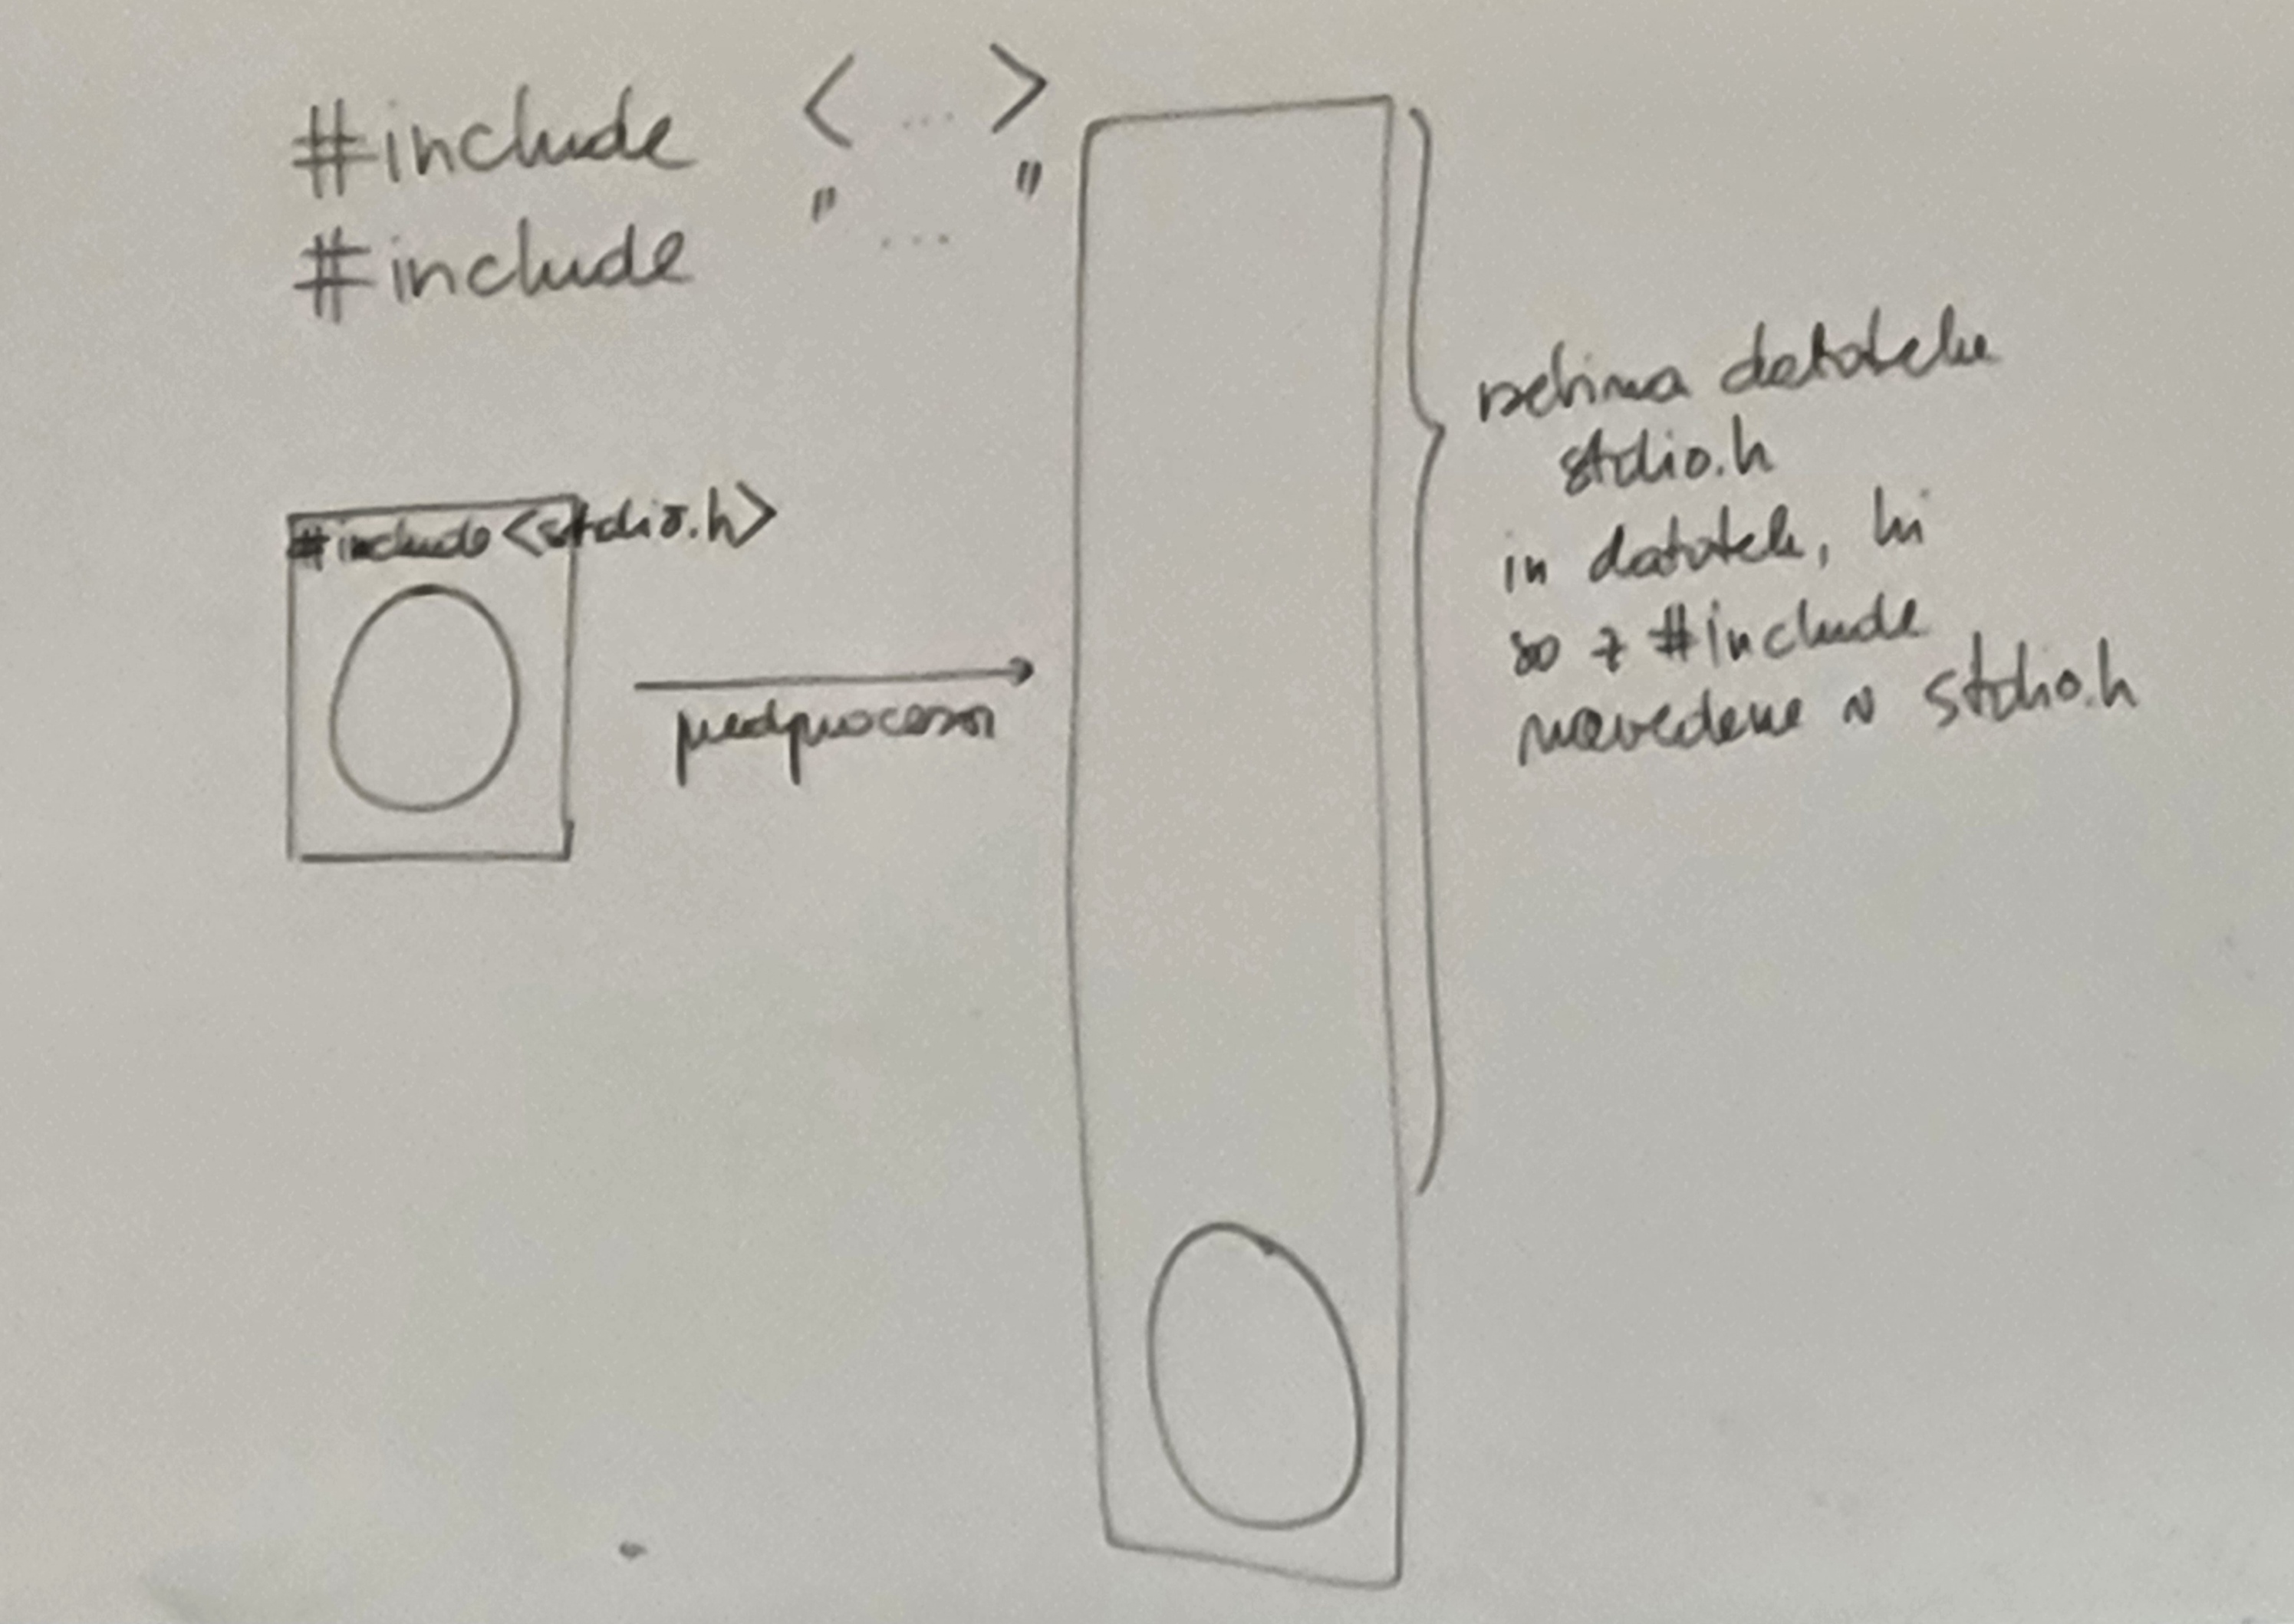 #include < ... >
#include " ... "
#include <stdio.h>
predprocesor
vsebina datoteke
stdio.h
in datotek, ki
so z #include
navedene v stdio.h